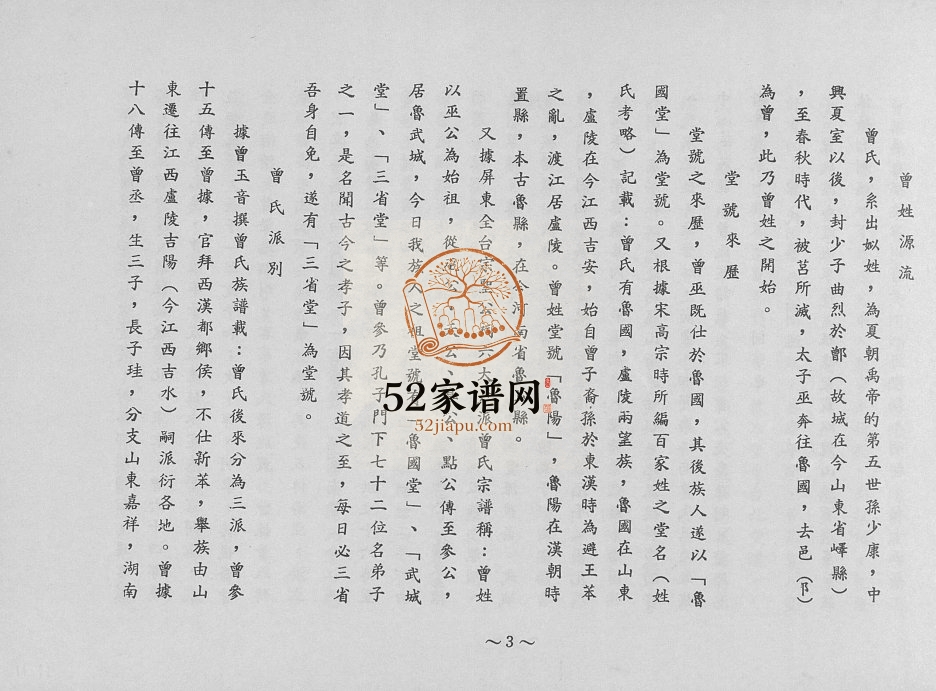 曾姓源流
曾氏，系出姒姓，為夏朝禹帝的第五世孫少康，中
興夏室以後，封少子曲烈於鄫（故城在今山東省嶧縣）
，至春秋時代，被莒所滅，太子巫奔往魯國，去邑（阝）
為曾，此乃曾姓之開始。
堂號來歷
堂號之來歷，曾巫既仕於魯國，其後族人遂以「魯
國堂」為堂號。又根據宋高宗時所編百家姓之堂名（姓
氏考略）記載：曾氏有魯國，盧陵兩望族，魯國在山東
，盧陵在今江西吉安，始自曾子裔孫於東漢時為避王莽
之亂，渡江居盧陵。曾姓堂號「魯陽」，魯陽在漢朝時
置縣，本古魯縣，在今河南省魯縣。
又據屏東全台宗聖公六大派曾氏宗譜稱：曾姓
以巫公為始祖，從公、公、公、點公傳至參公，
居魯武城，今日我族人之祖堂號有魯國堂」、「武城
堂」、「三省堂」等。曾參乃孔子門下七十二位名弟子
之一，是名聞古今之孝子，因其孝道之至，每日必三省
吾身自免，遂有「三省堂」為堂號。
曾氏派別
據曾玉音撰曾氏族譜載：曾氏後來分為三派，曾參
十五傳至曾據，官拜西漢都鄉侯，不仕新莽，舉族由山
東遷往江西盧陵吉陽（今江西吉水）嗣派衍各地。曾據
十八傳至曾丞，生三子，長子珪，分支山東嘉祥，湖南
～3～
52家谱网
52jiapu.com